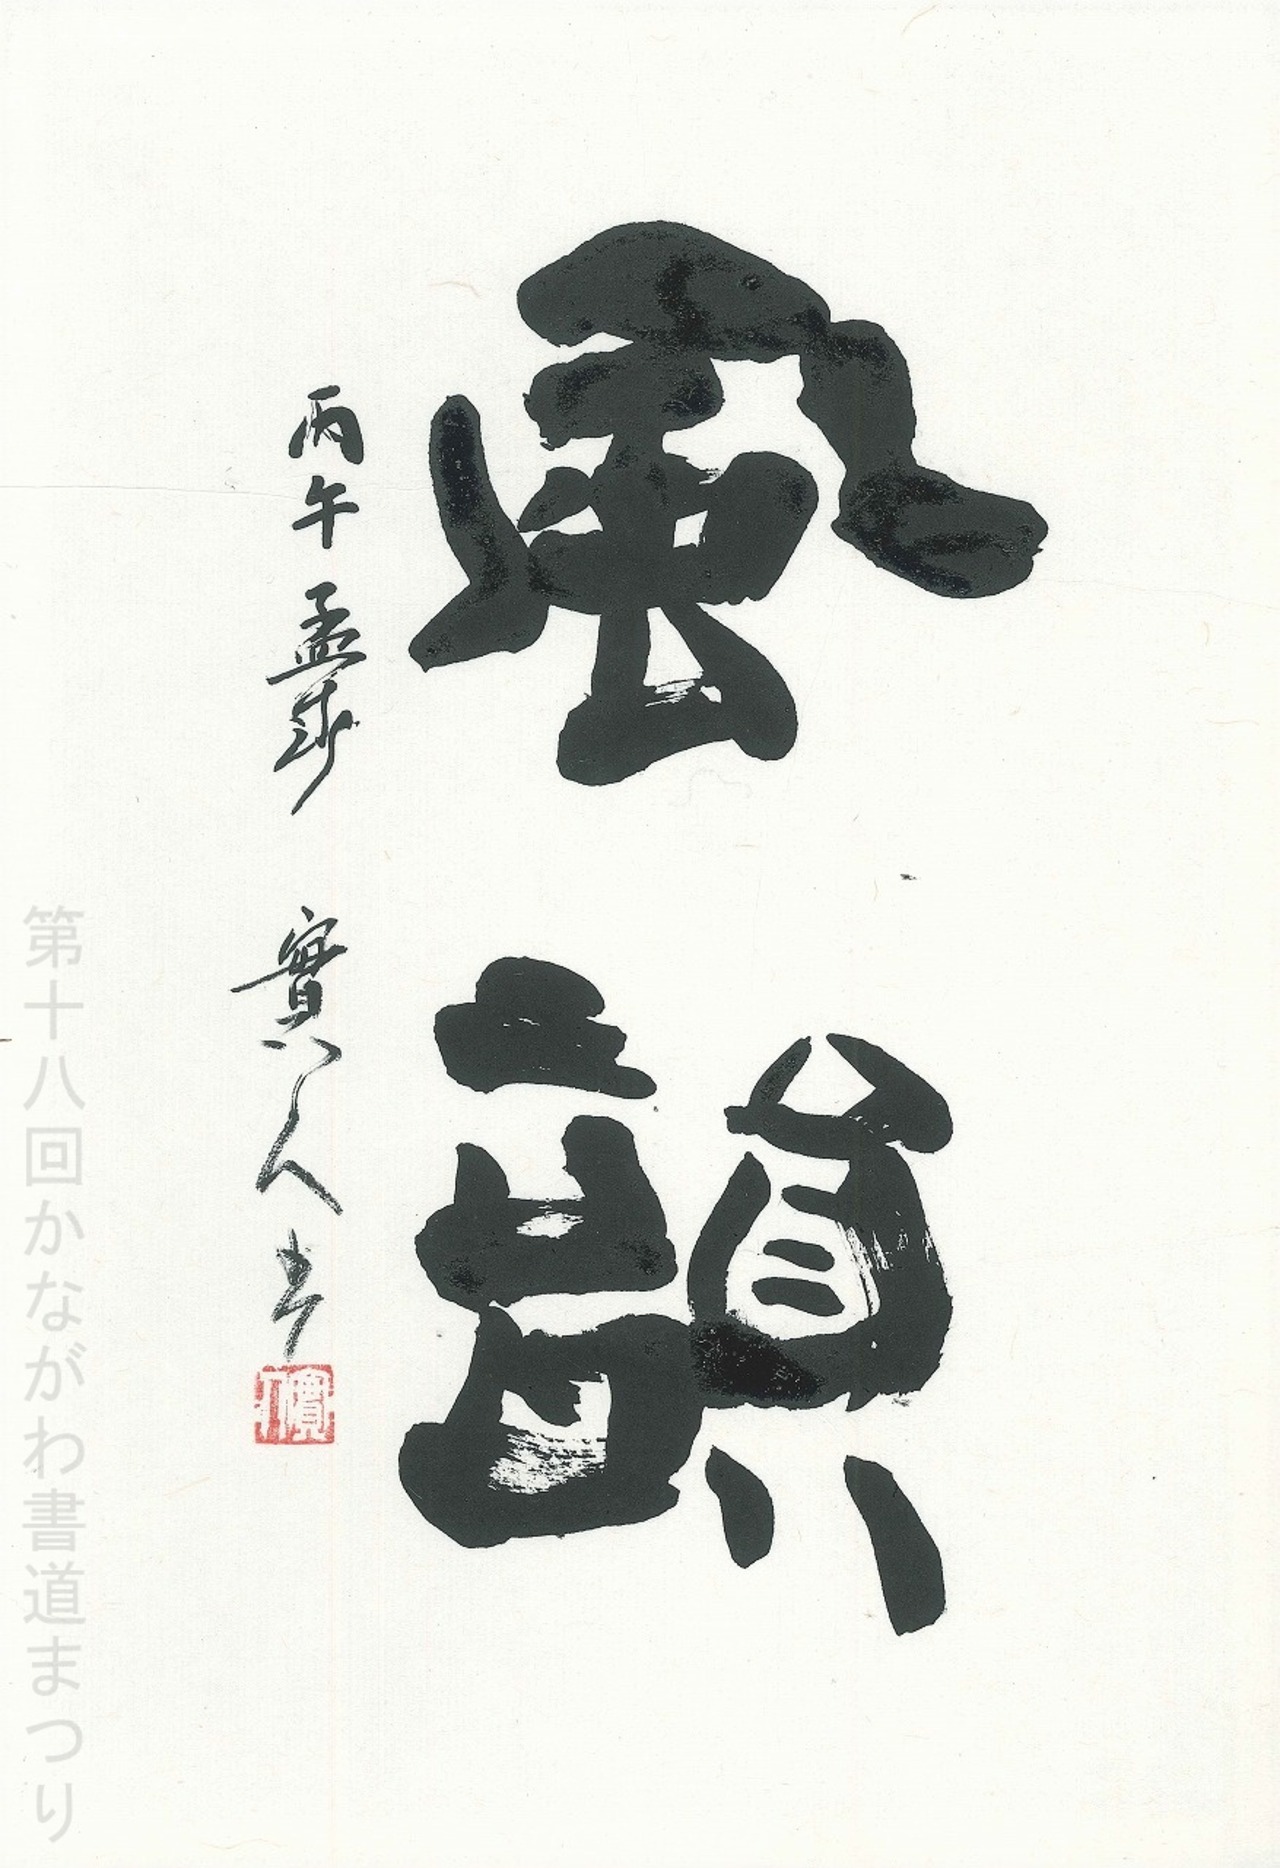 風韻
丙午孟春 實人書
實人
第十八回かながわ書道まつり